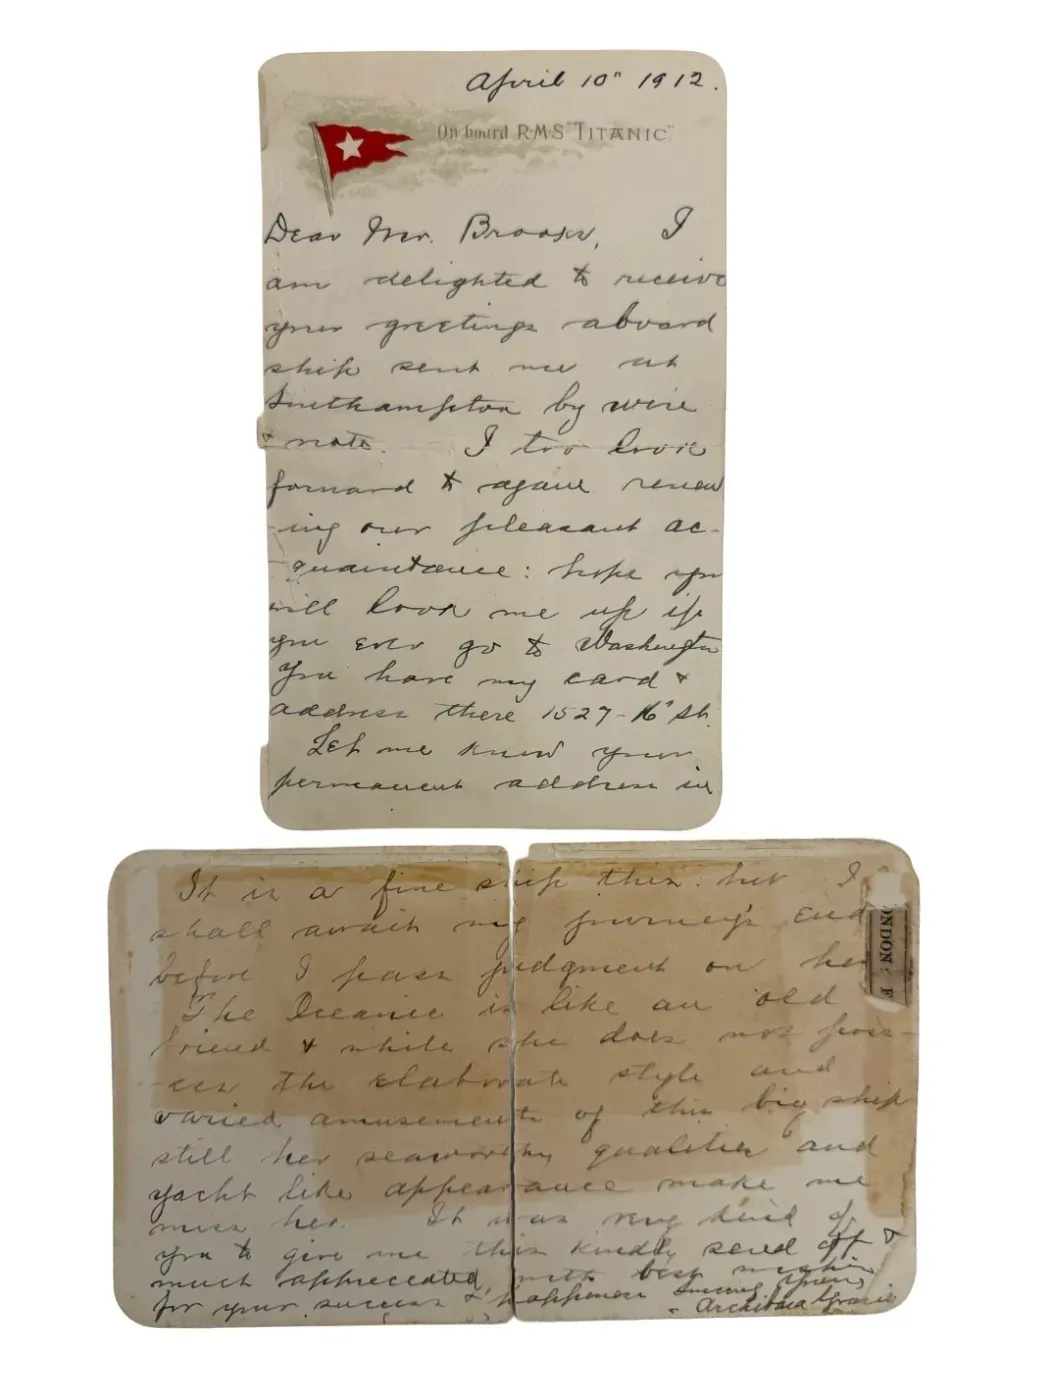 April 10" 1912.
On board R.M.S "TITANIC".
Dear Mr. Brooks, I
am delighted to receive
your greetings aboard
ship sent me at
Southampton by wire
& note. I too look
forward to again renew
-ing our pleasant ac-
quaintance: hope you
will look me up if
you ever go to Washington
You have my card &
address there 1527-16" St.
Let me know your
permanent address in
It is a fine ship this: but I
shall await my journey's end
before I pass judgment on her
The Oceanic is like an old
friend & while she does not poss-
-ess the elaborate style and
varied amusements of this big ship
still her seaworthy qualities and
yacht like appearance make me
miss her. It was very kind of
you to give me this kindly send off &
much appreciated, with best wishes
for your success & happiness Sincerely Yours
Archibald Gracie
ONDON: F